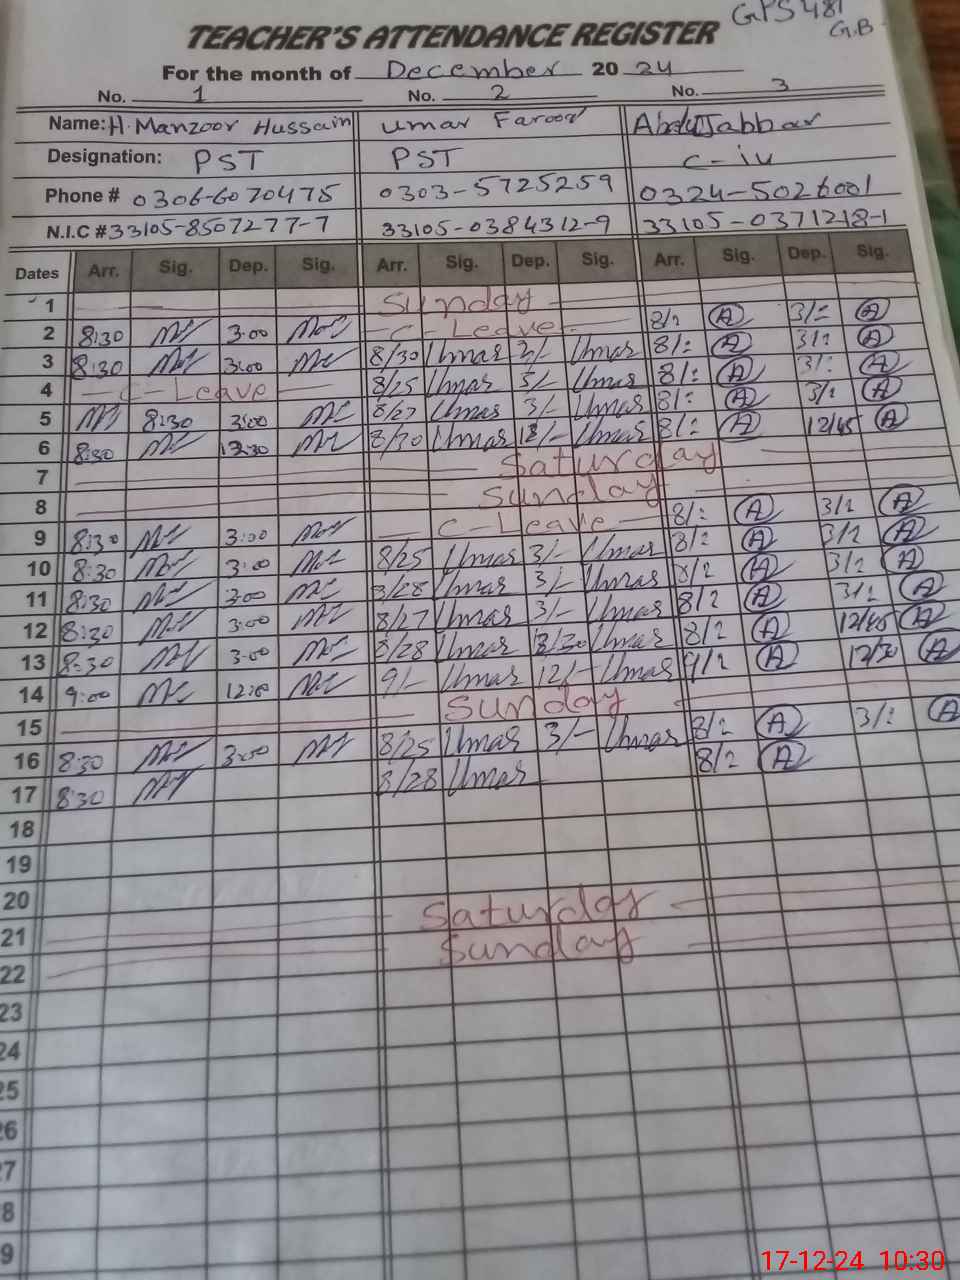 GPS 481
G.B
TEACHER'S ATTENDANCE REGISTER
For the month of December 20 24
No. 1 No. 2 No. 3
Name: H. Manzoor Hussain Umar Farooq Abdul Jabbar
Designation: PST PST C-iv
Phone # 0306-6070475 0303-5725259 0324-5026001
N.I.C # 33105-8507277-7 33105-0384312-9 33105-0371218-1
Dates Arr. Sig. Dep. Sig. Arr. Sig. Dep. Sig. Arr. Sig. Dep. Sig.
1 Sunday
2 8:30 3:00 C-Leave 8/: A 3/: A
3 8:30 3:00 8/30 Umar 3/- Umar 8/: A 3/: A
4 C-Leave 8/25 Umar 3/- Umar 8/: A 3/: A
5 8:30 3:00 8/27 Umar 3/- Umar 8/: A 3/: A
6 8:30 12:30 8/30 Umar 12/- Umar 8/: A 12/45 A
7 Saturday
8 Sunday
9 8:30 3:00 C-Leave 8/: A 3/: A
10 8:30 3:00 8/25 Umar 3/- Umar 8/: A 3/: A
11 8:30 3:00 8/28 Umar 3/- Umar 8/: A 3/: A
12 8:30 3:00 8/27 Umar 3/- Umar 8/: A 3/: A
13 8:30 3:00 8/28 Umar 12/30 Umar 8/: A 12/45 A
14 9:00 12:00 9/- Umar 12/- Umar 9/: A 12/30 A
15 Sunday
16 8:30 3:00 8/25 Umar 3/- Umar 8/: A 3/: A
17 8:30 8/28 Umar 8/: A
18
19
20
21 Saturday
22 Sunday
23
24
25
26
27
28
29
17-12-24 10:30